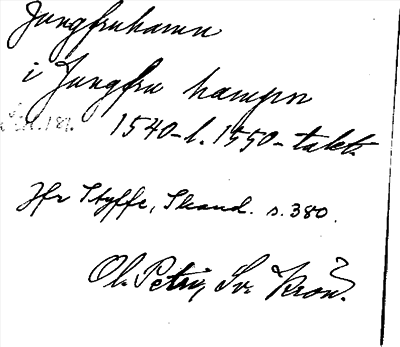 Jungfruhamn
i Jungfru hampn
1540-l. 1550-talet.
Jfr Styffe, Skand. s. 380.
Ol. Petri, Sv. Krön.